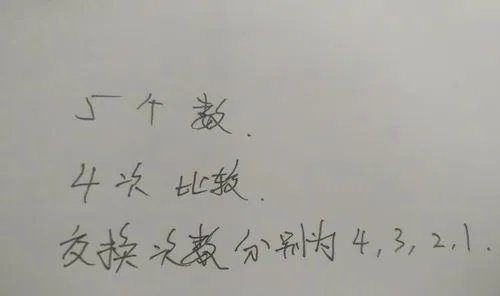 5个数.
4次比较.
交换次数分别为4,3,2,1.